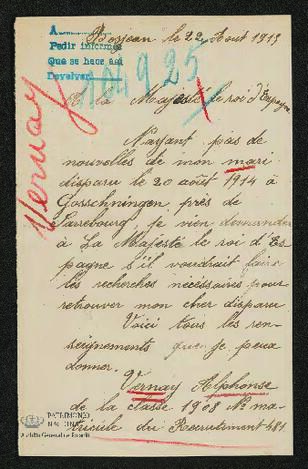 Bosjean le 22 Aout 1915
A
Pedir informes
Que se hace así
Devolver
104925
Vernay
A la Majesté le roi d'Espagne
N'ayant pas de
nouvelles de mon mari
disparu le 20 août 1914 à
Gosschningen près de
Sarrebourg, je vien demander
à La Majesté le roi d'Es
pagne s'il voudrait faire
les recherches nécessaires pour
retrouver mon cher disparu
Voici tous les ren-
seignements que je peux
donner.
Vernay Alphonse
de la classe 1908 No ma-
tricule du Recrutement 481
PATRIMONIO
NACIONAL